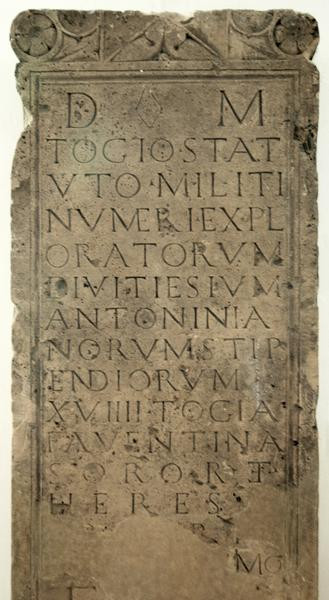 D M
TOGIOSTAT
VTO·MILITI
NVMERIEXPL
ORATORVM
DIVITIESIVM
ANTONINIA
NORVMSTIP
ENDIORVM
XVIIII·TOGIA
FAVENTINA
SORORET
HERES
MO